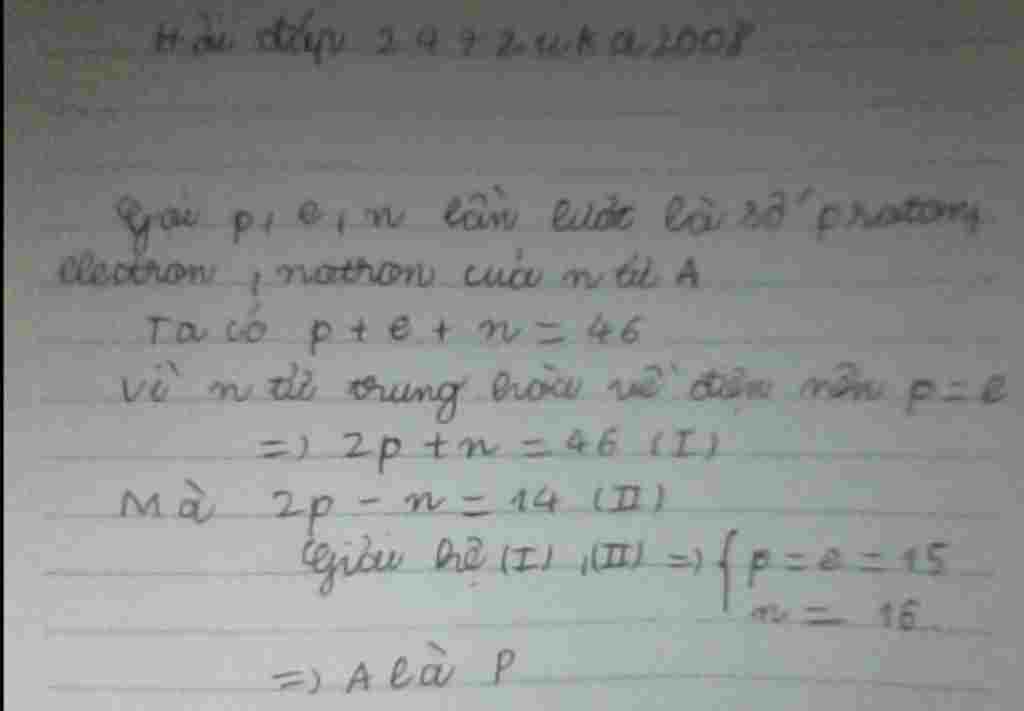 Hỏi đáp 247
Gọi p, e, n lần lượt là số proton,
electron, nơtron của n tử A
Ta có p + e + n = 46
Vì n tử trung hòa về điện nên p = e
=) 2p + n = 46 (I)
Mà 2p - n = 14 (II)
Giải hệ (I), (II) =) { p = e = 15
n = 16
=) A là P